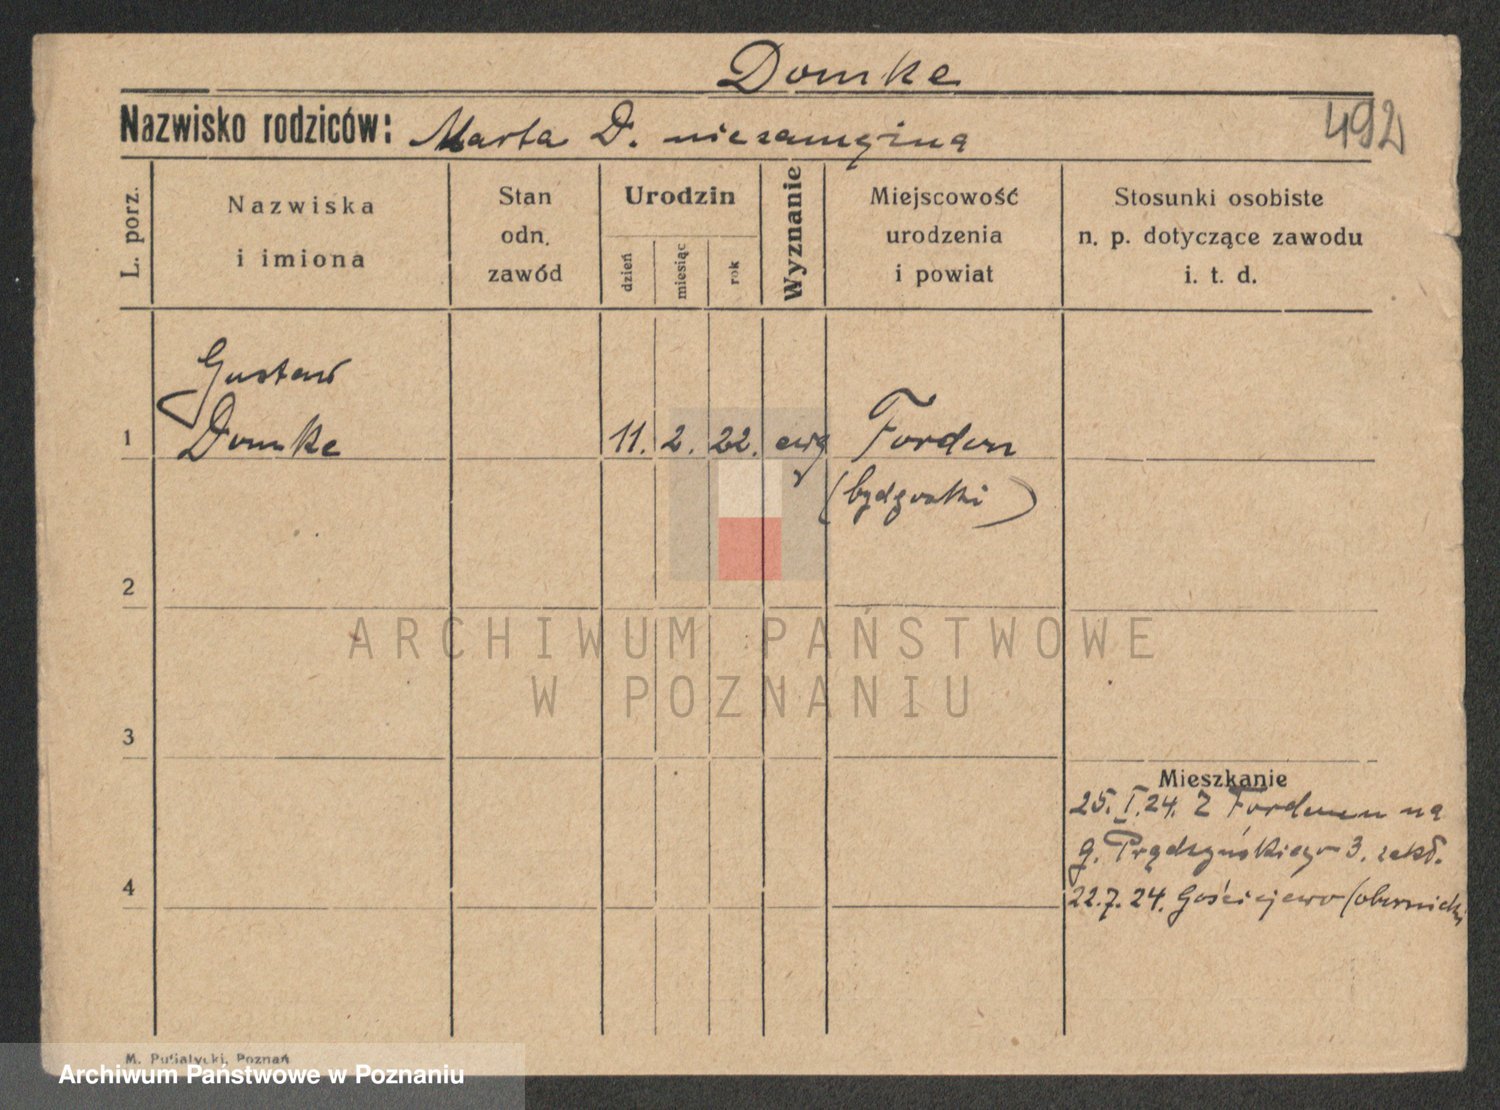 Domke
Nazwisko rodziców: Marta D. niezamężna
492
L. porz.
Nazwiska
i imiona
Stan
odn.
zawód
Urodzin
dzień
miesiąc
rok
Wyznanie
Miejscowość
urodzenia
i powiat
Stosunki osobiste
n. p. dotyczące zawodu
i. t. d.
Gustaw
1 Domke 11. 2. 22. ewg Fordon
(bydgoski)
2
ARCHIWUM PAŃSTWOWE
W POZNANIU
3
Mieszkanie
25. I. 24. Z Fordonu na
g. Prądzyńskiego 3. zakł.
4
22.7.24. Gościejewo (obornicki
M. Putiatycki, Poznań
Archiwum Państwowe w Poznaniu